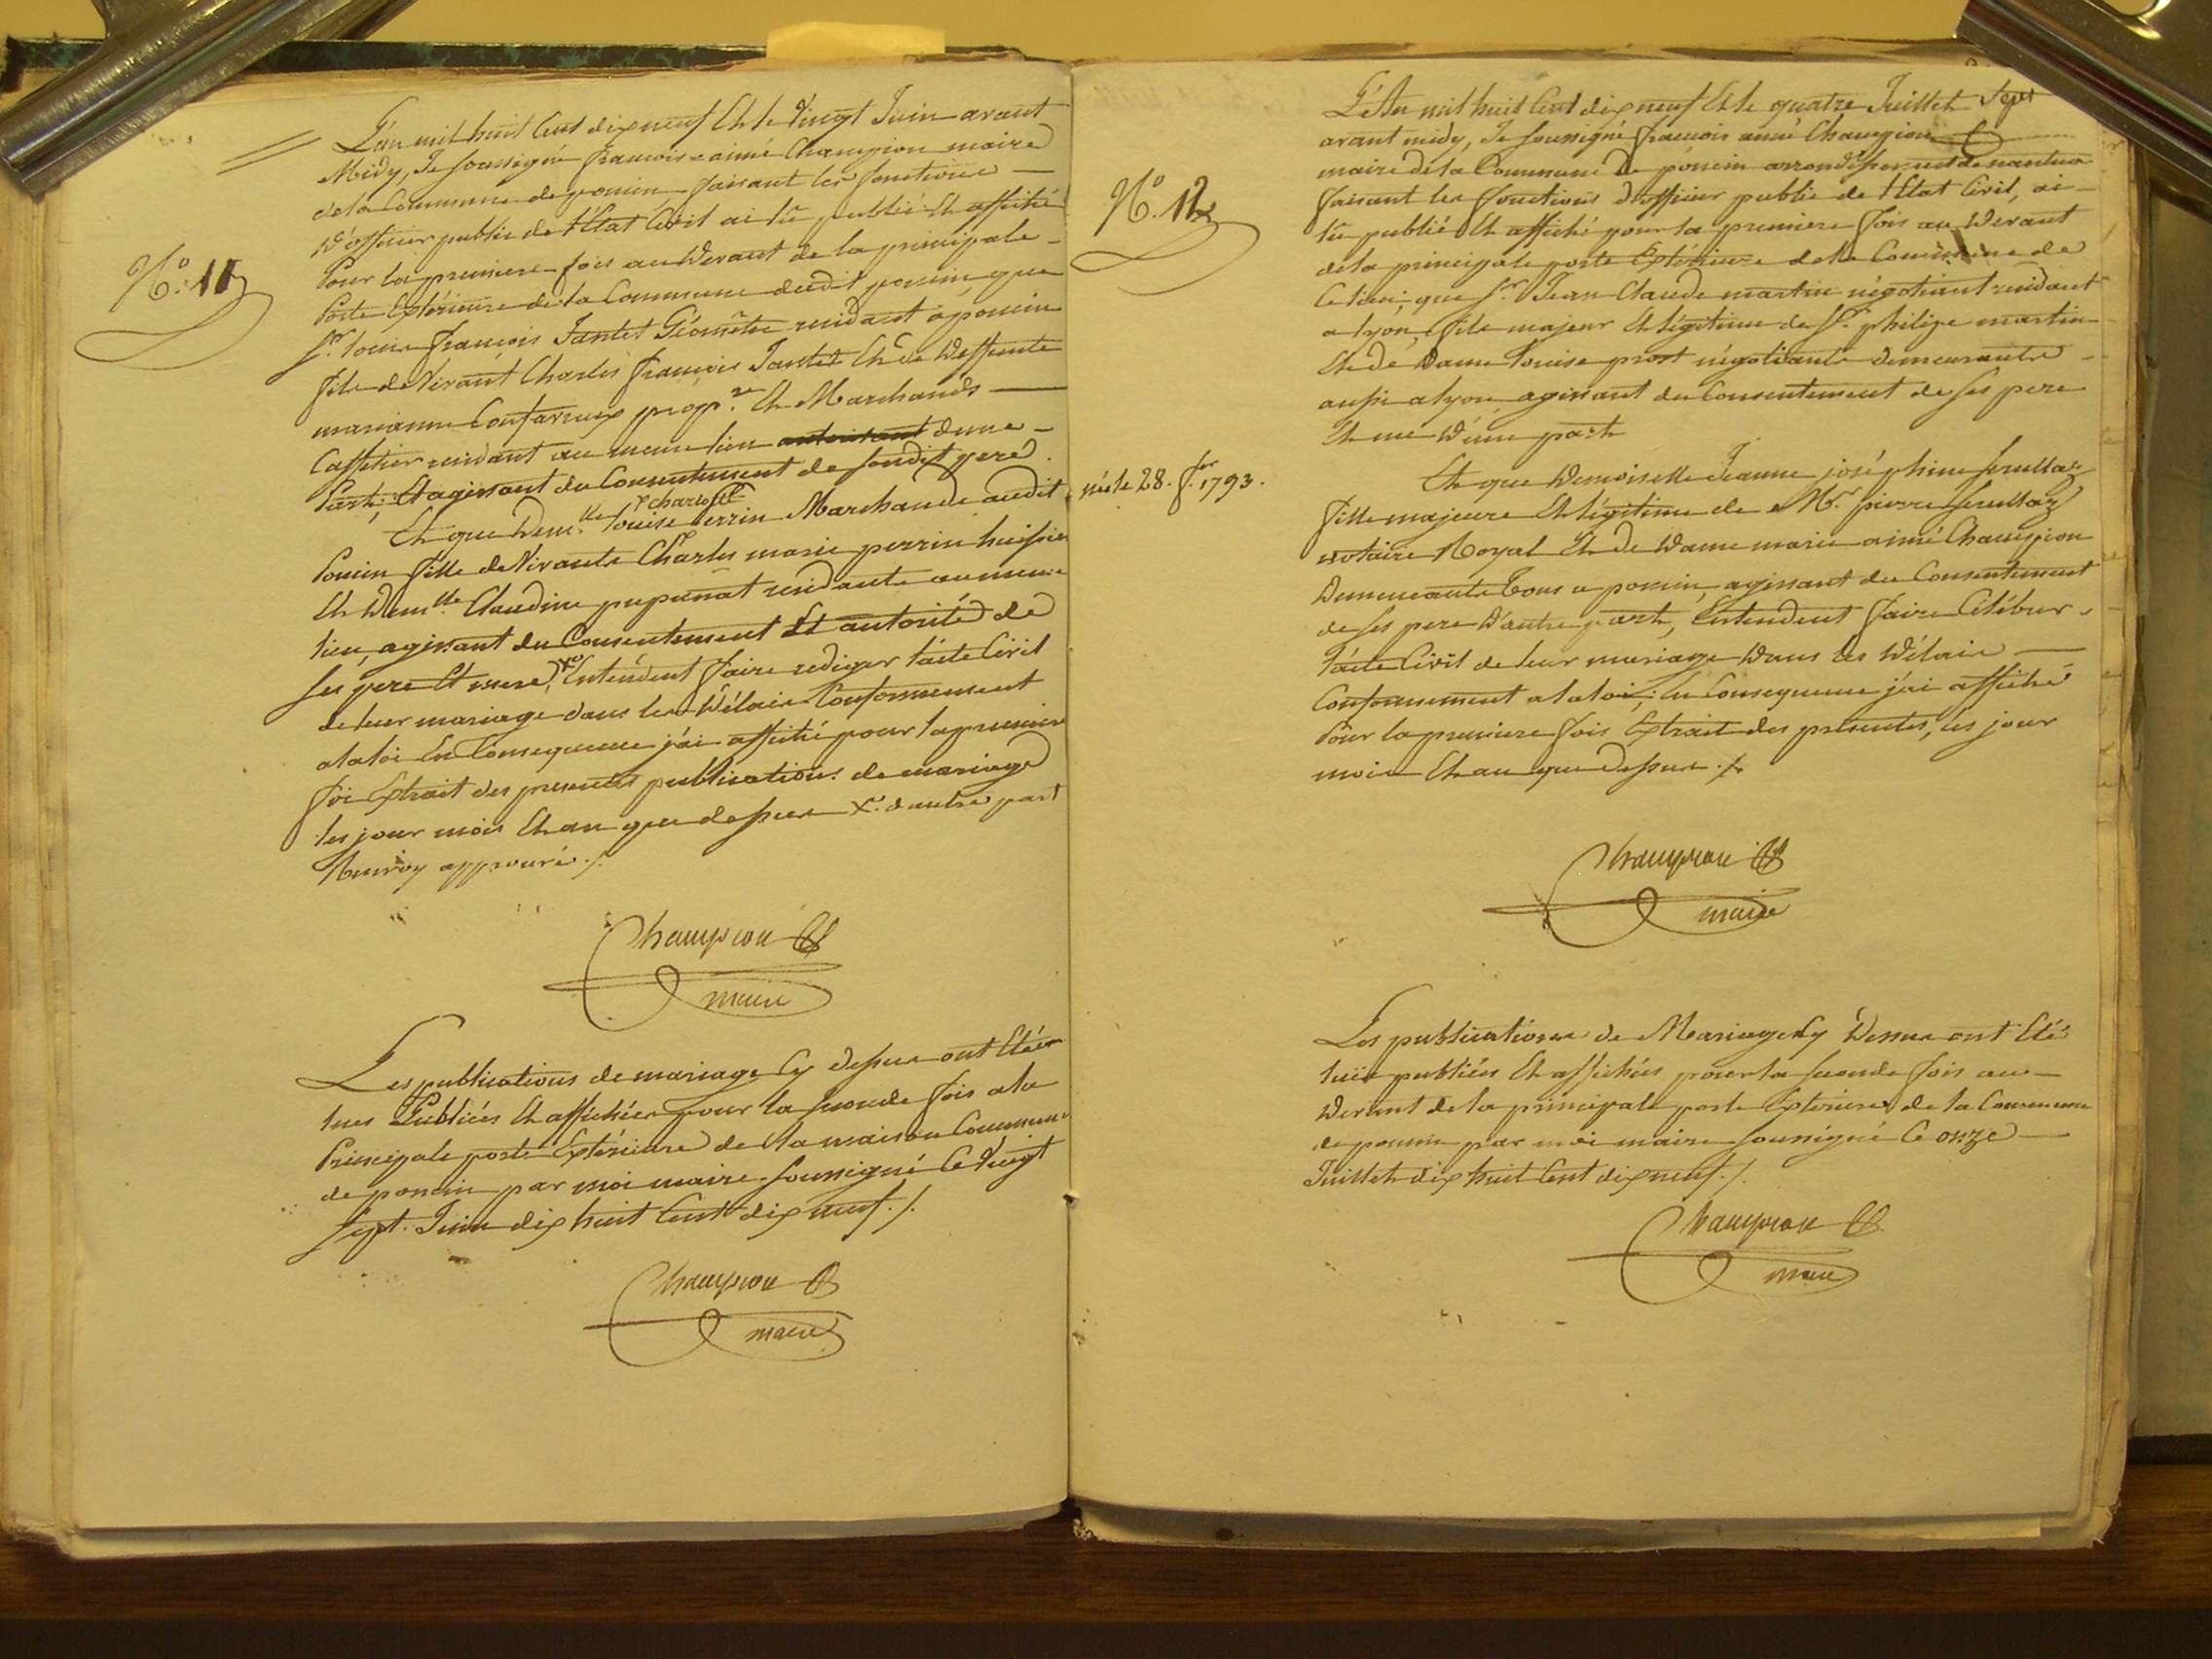 N.° 11
L'an mil huit Cent dix neuf Et le vingt Juin avant
Midy, Je soussigné francois aimé Champion maire
de la Commune de poncin, faisant les fonctions
d'officier public de l'Etat Civil ai lû publié Et affiché
Pour la premiere fois au Devant de la principale
Porte Extérieure de la Commune dudit poncin, que
S.r Louis françois Jantet Géomêtre residant a poncin
fils de Vivant Charles françois Jantet Et de Deffunte
marianne Confavreux prop.re Et Marchands
Caffetier residant au meme lieu dune
Part; Et agissant du Consentement de sondit pere.
Et que Dem.lle Louise charlotte Perrin Marchande audit
Poncin fille de Vivants Charles marie perrin huissier
Et Dem.lle Claudine pupunat residante au meme
lieu, agissant du Consentement Et autorité de
ses pere Et mere, x.° Entendent faire rediger l'acte Civil
de leur mariage dans les Délais Conformement
a la loi En Consequence j'ai affiché pour la premiere
foi Extrait des presentes publications de mariage
les jour mois Et an que dessus x.° d'autre part
Renvoy approuvé ./.
Champion
maire
Les publications de mariage Cy dessus ont Eté
lues Publiées Et affichées pour la seconde fois a la
Principale porte Extérieure de la maison Commune
de poncin par moi maire soussigné le Vingt
sept. Juin dix huit Cent dix neuf ./.
Champion
maire
N.° 12
L'An mil huit Cent dix neuf Et le quatre Juillet sept
avant midy, Je soussigné francois aimé Champion
maire de la Commune de poncin arrondissement de nantua
faisant les fonctions d'officier public de l'Etat Civil, ai
lû publié Et affiché pour la premiere fois au Devant
de la principale porte Extérieure de la Commune de
Ce lieu, que S.r Jean Claude martin négotiant residant
a lyon, fils majeur Et légitime de S.r philipe martin
Et de Dame Louise prost négotiants demeurants
aussi a lyon, agissant du Consentement de ses pere
Et mere D'une part
née le 28. f.er 1793.
Et que Demoiselle Jeanne joséphine serullaz
fille majeure Et légitime de M.r pierre serullaz
notaire Royal Et de Dame marie aimé Champion
Demeurants tous a poncin, agissant du Consentement
de ses pere D'autre part, Entendent faire Célébrer
l'acte Civil de leur mariage Dans les Délais
Conformement a la loi; En Consequence j'ai affiché
Pour la premiere fois Extrait des présentes, les jour
mois Et an que dessus ./.
Champion
maire
Les publications de Mariage Cy Dessus ont Eté
luës publiées Et affichées pour la seconde fois au
Devant de la principale porte Extérieure de la Commune
de poncin par moi maire soussigné le onze
Juillet dix huit Cent dix neuf ./.
Champion
maire